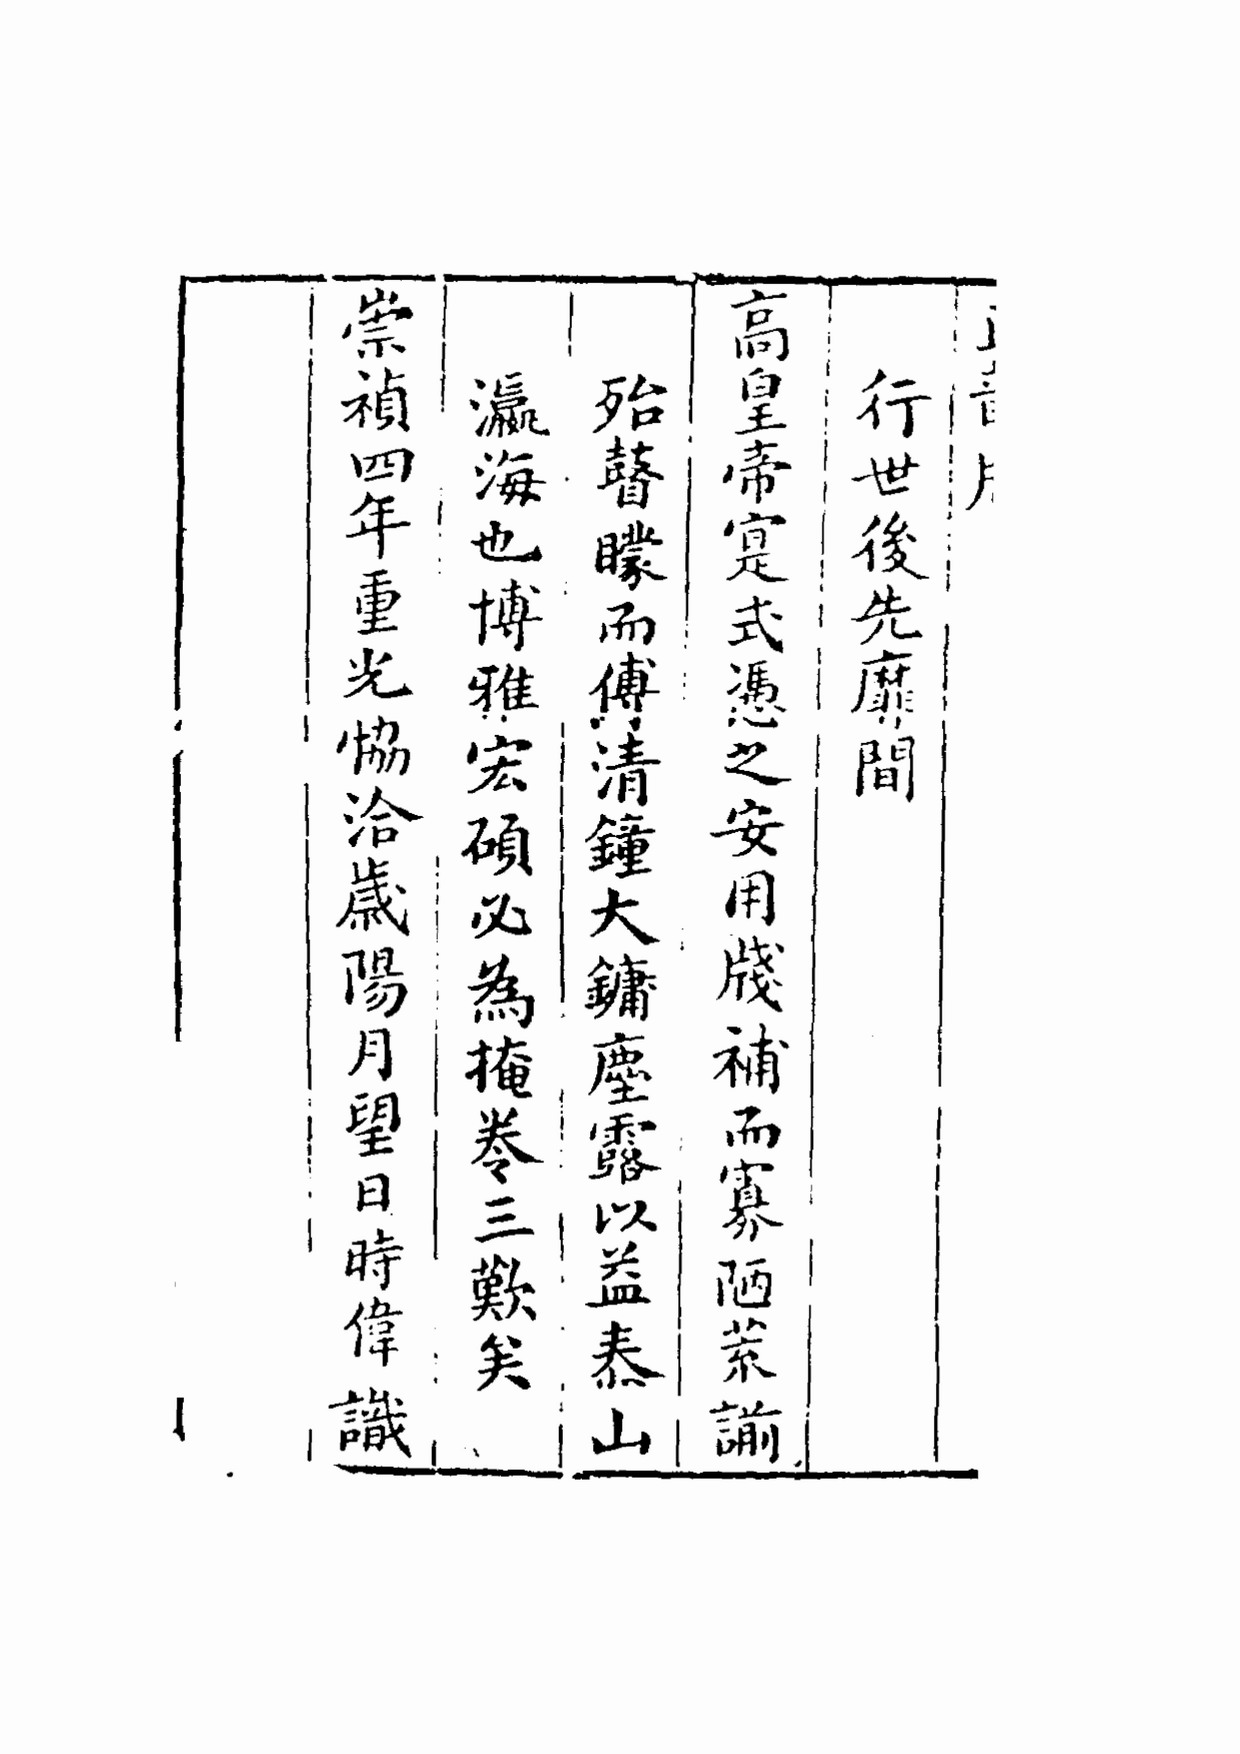 行世後先靡間
高皇帝寔式憑之安用牋補而寡陋蒙諭
殆瞽矇而傅清鐘大鏞塵露以益泰山
瀛海也博雅宏碩必為掩卷三歎矣
崇禎四年重光協洽歲陽月望日時偉識